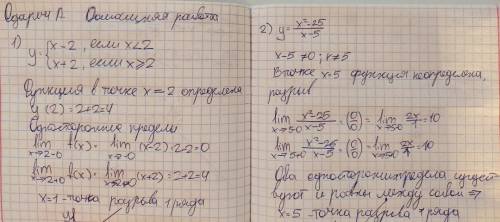 Одарич А. Домашняя работа
1) y={x-2, если x<2
{x+2, если x⩾2
Функция в точке x=2 определена
y(2)=2+2=4
Односторонние пределы
lim x→2-0 f(x)= lim x→2-0 (x-2)=2-2=0
lim x→2+0 f(x)= lim x→2+0 (x+2)=2+2=4
x=1-точка разрыва 1 рода
y↑
2) y=x²-25/x-5
x-5≠0; x≠5
В точке x=5 функция неопределена,
разрыв
lim x→5-0 x²-25/x-5=(0/0)= lim x→5-0 2x/1=10
lim x→5+0 x²-25/x-5=(0/0)= lim x→5+0 2x/1=10
Два односторонних предела сущест
вуют и равны между собой ⇒
x=5-точка разрыва 1 рода